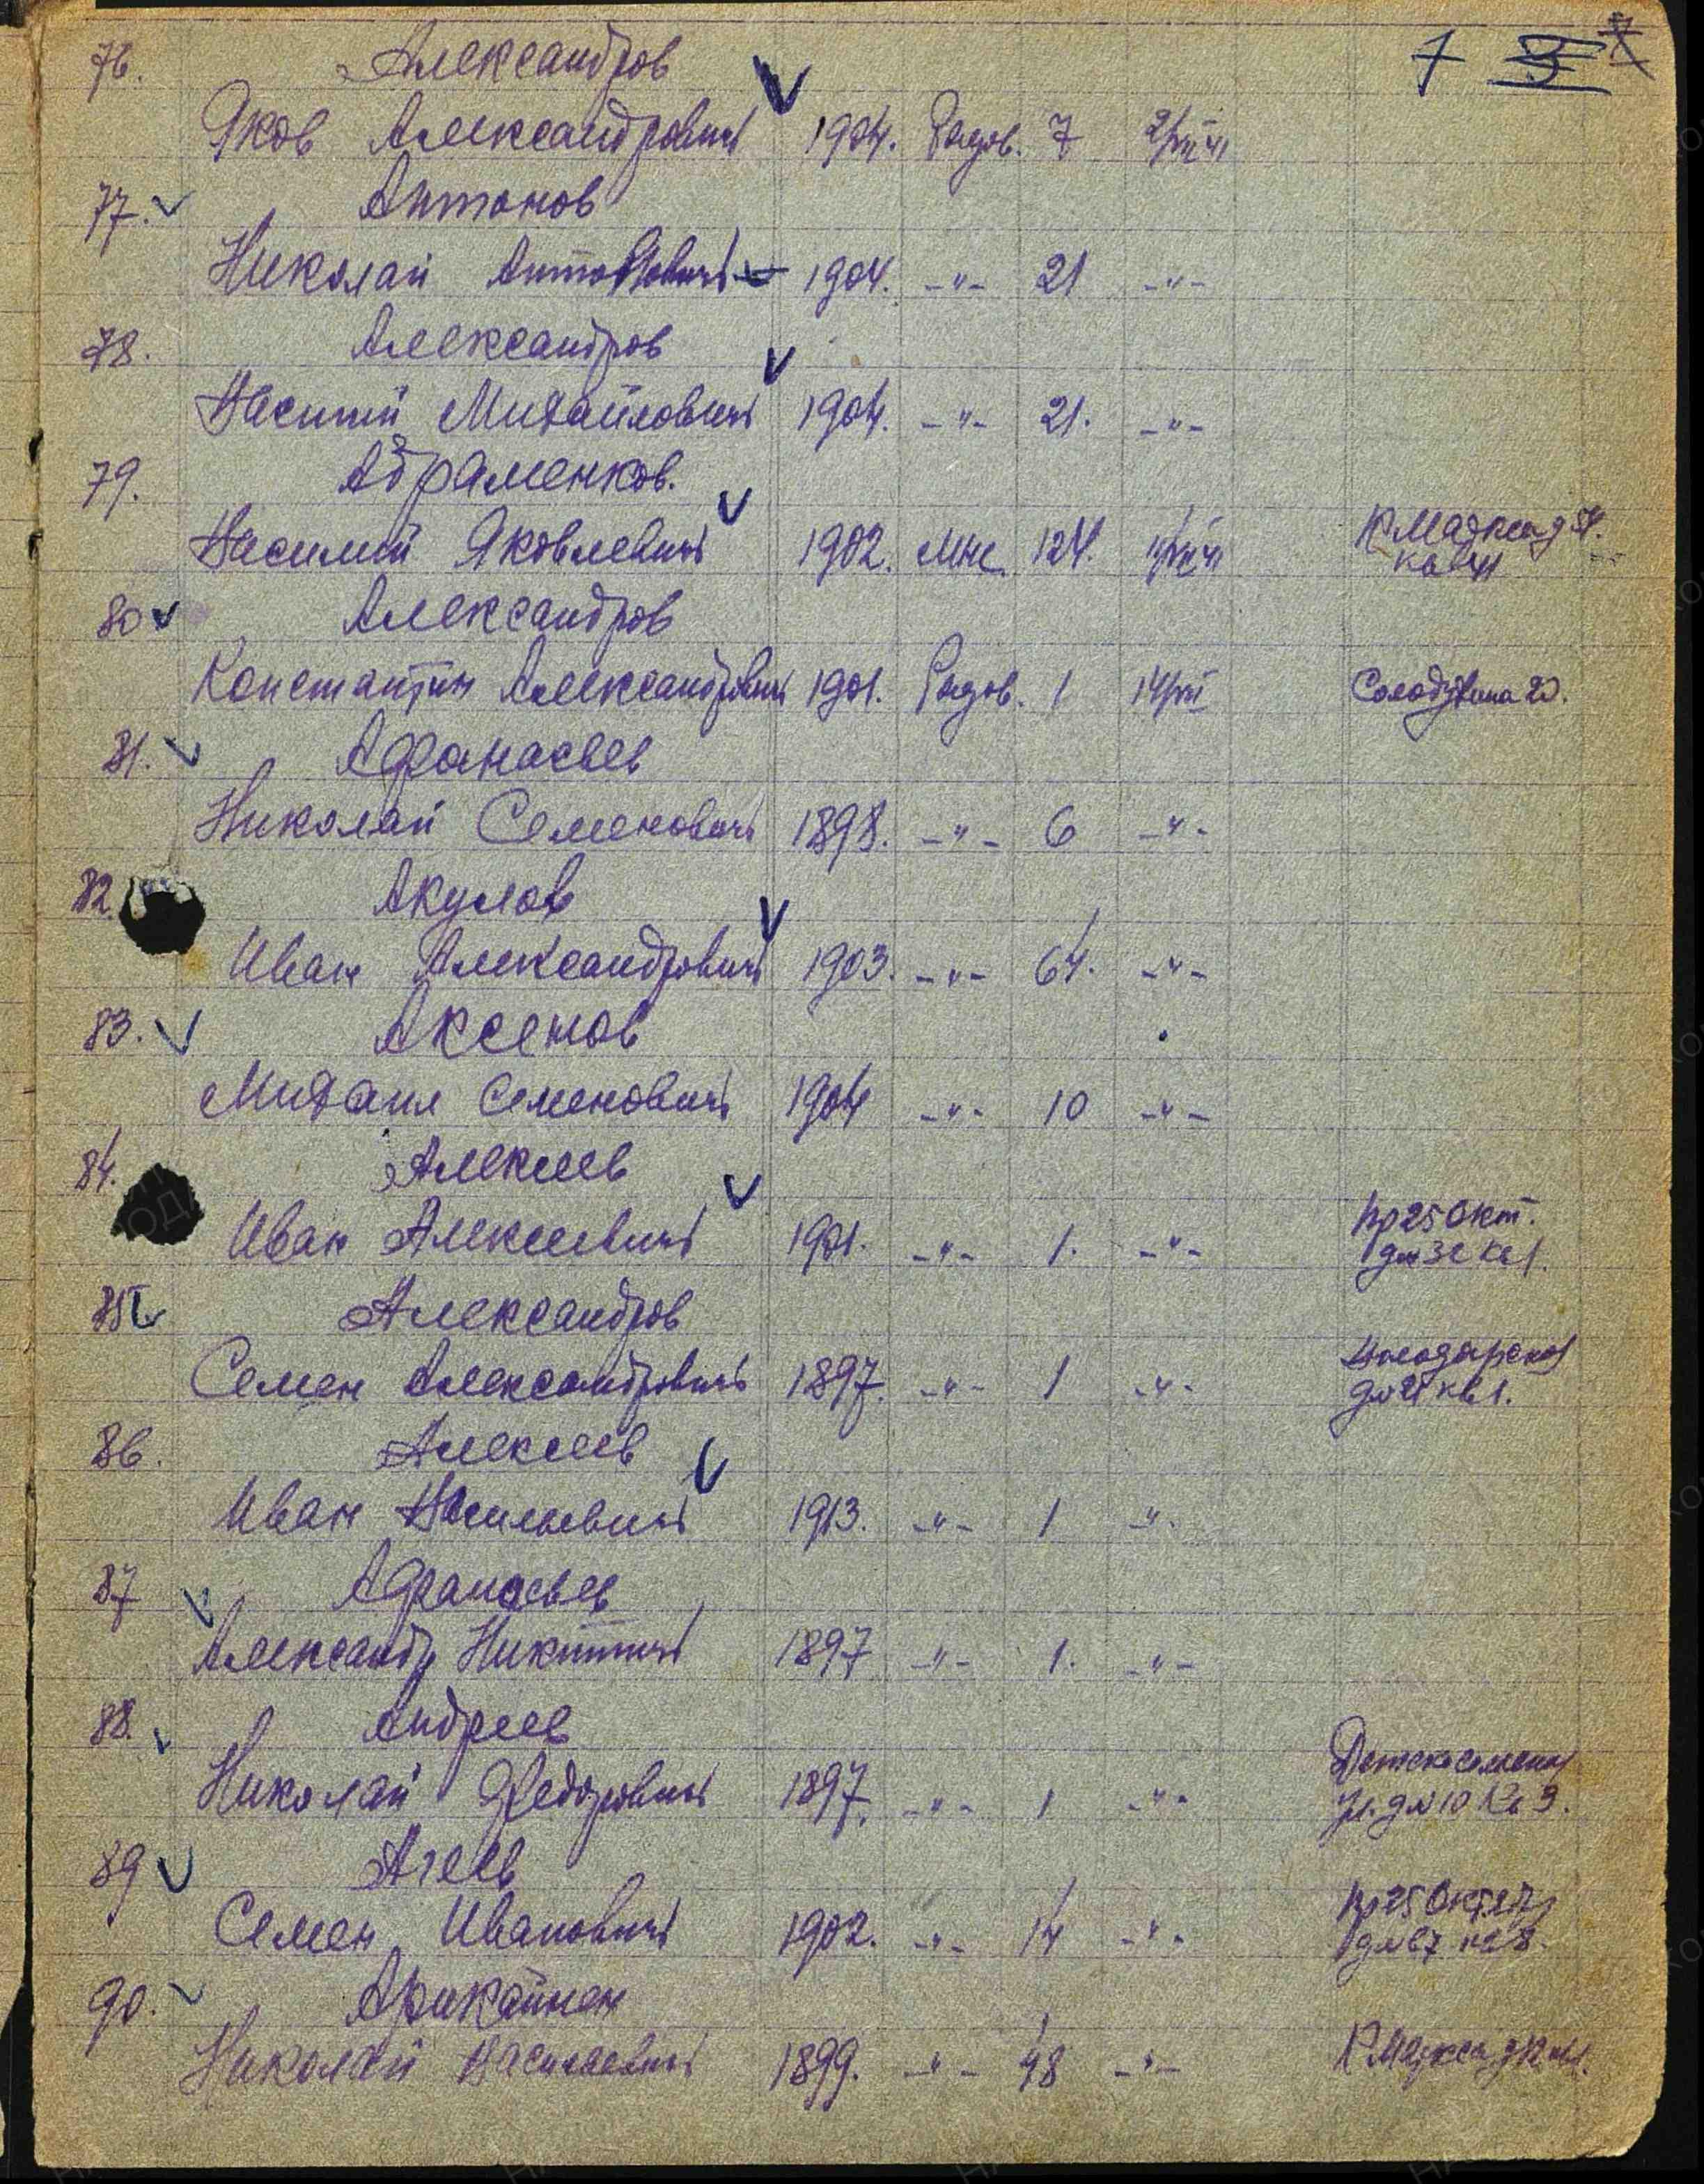 7
76. Александров
Яков Александрович 1904. Рядов. 7 2/VII 41
77. Антонов
Николай Антонович 1904. -"- 21 -"-
78. Александров
Василий Михайлович 1904. -"- 21. -"-
79. Абраменков.
Василий Яковлевич 1902. Мнс. 124. К Маркса д
80 Александров
Константин Александрович 1901. Рядов. 1 14/VII 20.
81. Афанасьев
Николай Семенович 1898. -"- 6 -"-
82. Акулов
Иван Александрович 1903. -"- 64. -"-
83. Аксенов
Михаил Семенович 1904 -"- 10 -"-
84. Алексеев
Иван Алексеевич 1901. -"- 1. -"- пр 25 Окт.
д № 32 кв 1.
85 Александров
Семен Александрович 1897. -"- 1 -"- Володарского
д № 21 кв 1.
86. Алексеев
Иван Васильевич 1913. -"- 1 -"-
87 Афанасьев
Александр Никитич 1897 -"- 1. -"-
88. Андреев
Николай Федорович 1897. -"- 1 -"- Детскосельск
ул. д № 10 кв 9.
89 Агеев
Семен Иванович 1902. -"- 14 -"- пр 25 Октяб
д № 67 кв 8.
90.
Николай Васильевич 1899. -"- 48 -"- К Маркса д